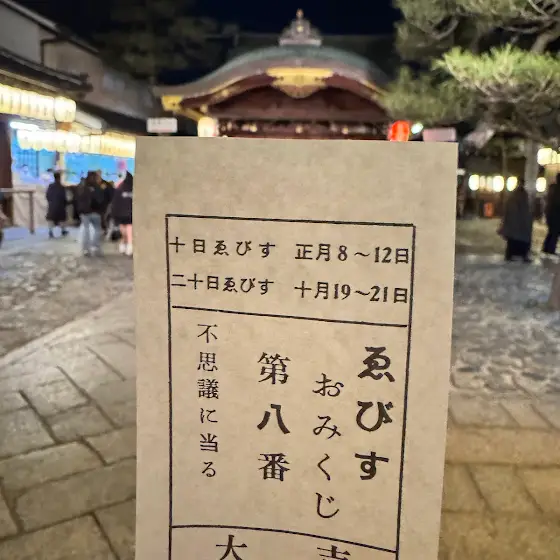 十日ゑびす 正月8～12日
二十日ゑびす 十月19～21日
ゑびす
おみくじ
第八番
不思議に当る